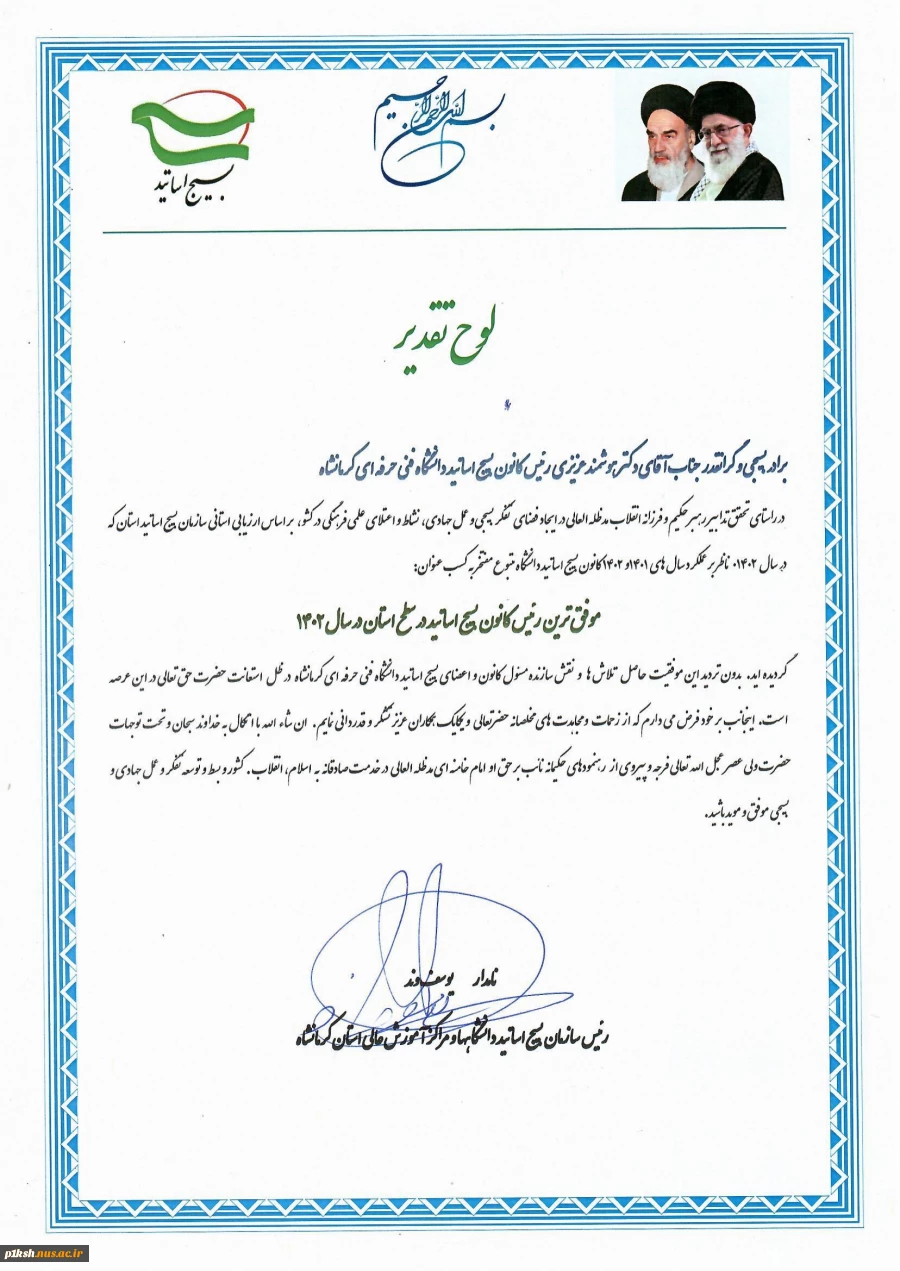 بسم الله الرحمن الرحیم
بسیج اساتید
لوح تقدیر
برادر بسیجی و گرانقدر جناب آقای دکتر هوشمند عزیزی رئیس کانون بسیج اساتید دانشگاه فنی حرفه ای کرمانشاه
در راستای تحقق تدابیر رهبر حکیم و فرزانه انقلاب مدظله العالی در ایجاد فضای تفکر بسیجی و عمل جهادی، نشاط و اعتلای علمی فرهنگی در کشور، بر اساس ارزیابی استانی سازمان بسیج اساتید استان که
در سال ۱۴۰۲، ناظر بر عملکرد سال های ۱۴۰۱و ۱۴۰۲ کانون بسیج اساتید دانشگاه متبوع مفتخر به کسب عنوان:
موفق ترین رئیس کانون بسیج اساتید در سطح استان در سال ۱۴۰۲
گردیده اید. بدون تردید این موفقیت حاصل تلاش ها و نقش سازنده مسئول کانون و اعضای بسیج اساتید دانشگاه فنی حرفه ای کرمانشاه در ظل استعانت حضرت حق تعالی در این عرصه
است. اینجانب بر خود فرض می دارم که از زحمات و مجاهدت های مخلصانه حضرتعالی و یکایک همکاران عزیز تشکر و قدردانی نمایم. ان شاء الله با اتکال به خداوند سبحان و تحت توجهات
حضرت ولی عصر عجل الله تعالی فرجه و پیروی از رهنمودهای حکیمانه نائب برحق او امام خامنه ای مدظله العالی در خدمت صادقانه به اسلام، انقلاب. کشور و بسط و توسعه تفکر و عمل جهادی و
بسیجی موفق و موید باشید.
نامدار یوسف وند
رئیس سازمان بسیج اساتید دانشگاهها و مراکز آموزش عالی استان کرمانشاه
p1ksh.nus.ac.ir